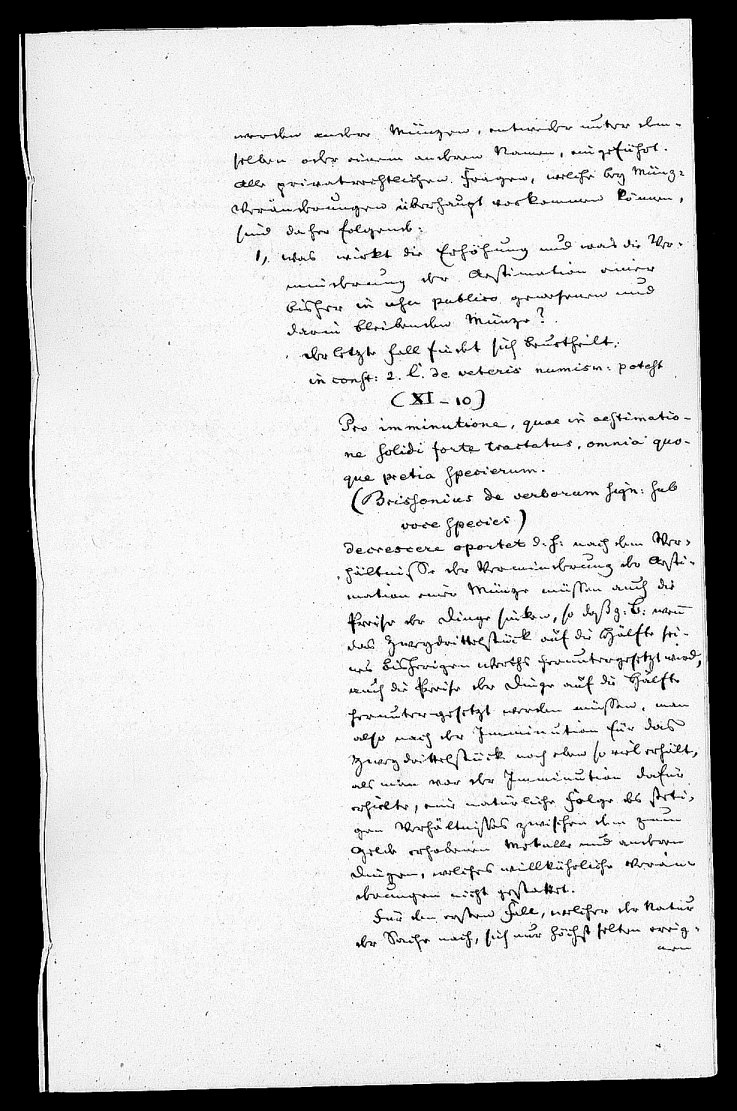 werden andre Münzen, entweder unter dem-
selben oder einem anderen Namen, eingeführt.
Alle privatrechtlichen Fragen, welche bey Münz-
Veränderungen überhaupt vorkommen können,
sind daher folgende:
1, was wirkt die Erhöhung und was die Ver-
minderung der Aestimation einer
bisher in usu publico gewesenen und
darin bleibenden Münze?
der letzte Fall findet sich beurtheilt.
in const: 2. C. de veteris numism: potest
(XI – 10)
Pro imminutione, quae in aestimatio-
ne solidi forte tractatur, omnia quo-
que pretia specierum.
(Brissonius de verborum sign: sub
voce species)
decrescere oportet d. h: nach dem Ver-
hältnisse der Verminderung der Aesti-
mation einer Münze müssen auch die
Preise der Dinge sinken, so daß z: B: wenn
das Zweydrittelstück auf die Hälfte sei-
nes bisherigen Werths heruntergesetzt wird,
auch die Preise der Dinge auf die Hälfte
heruntergesetzt werden müssen, man
also nach der Imminution für das
Zweydrittelstück noch eben so viel erhält,
als man vor der Imminution dafür
erhielte, eine natürliche Folge des steti-
gen Verhältnisses zwischen dem zum
Gelde erhobenen Metalle und anderen
Dingen, welches willkührliche Verän-
derungen nicht gestattet.
Für den ersten Fall, welcher der Natur
der Sache nach, sich nur höchst selten ereig-
nen